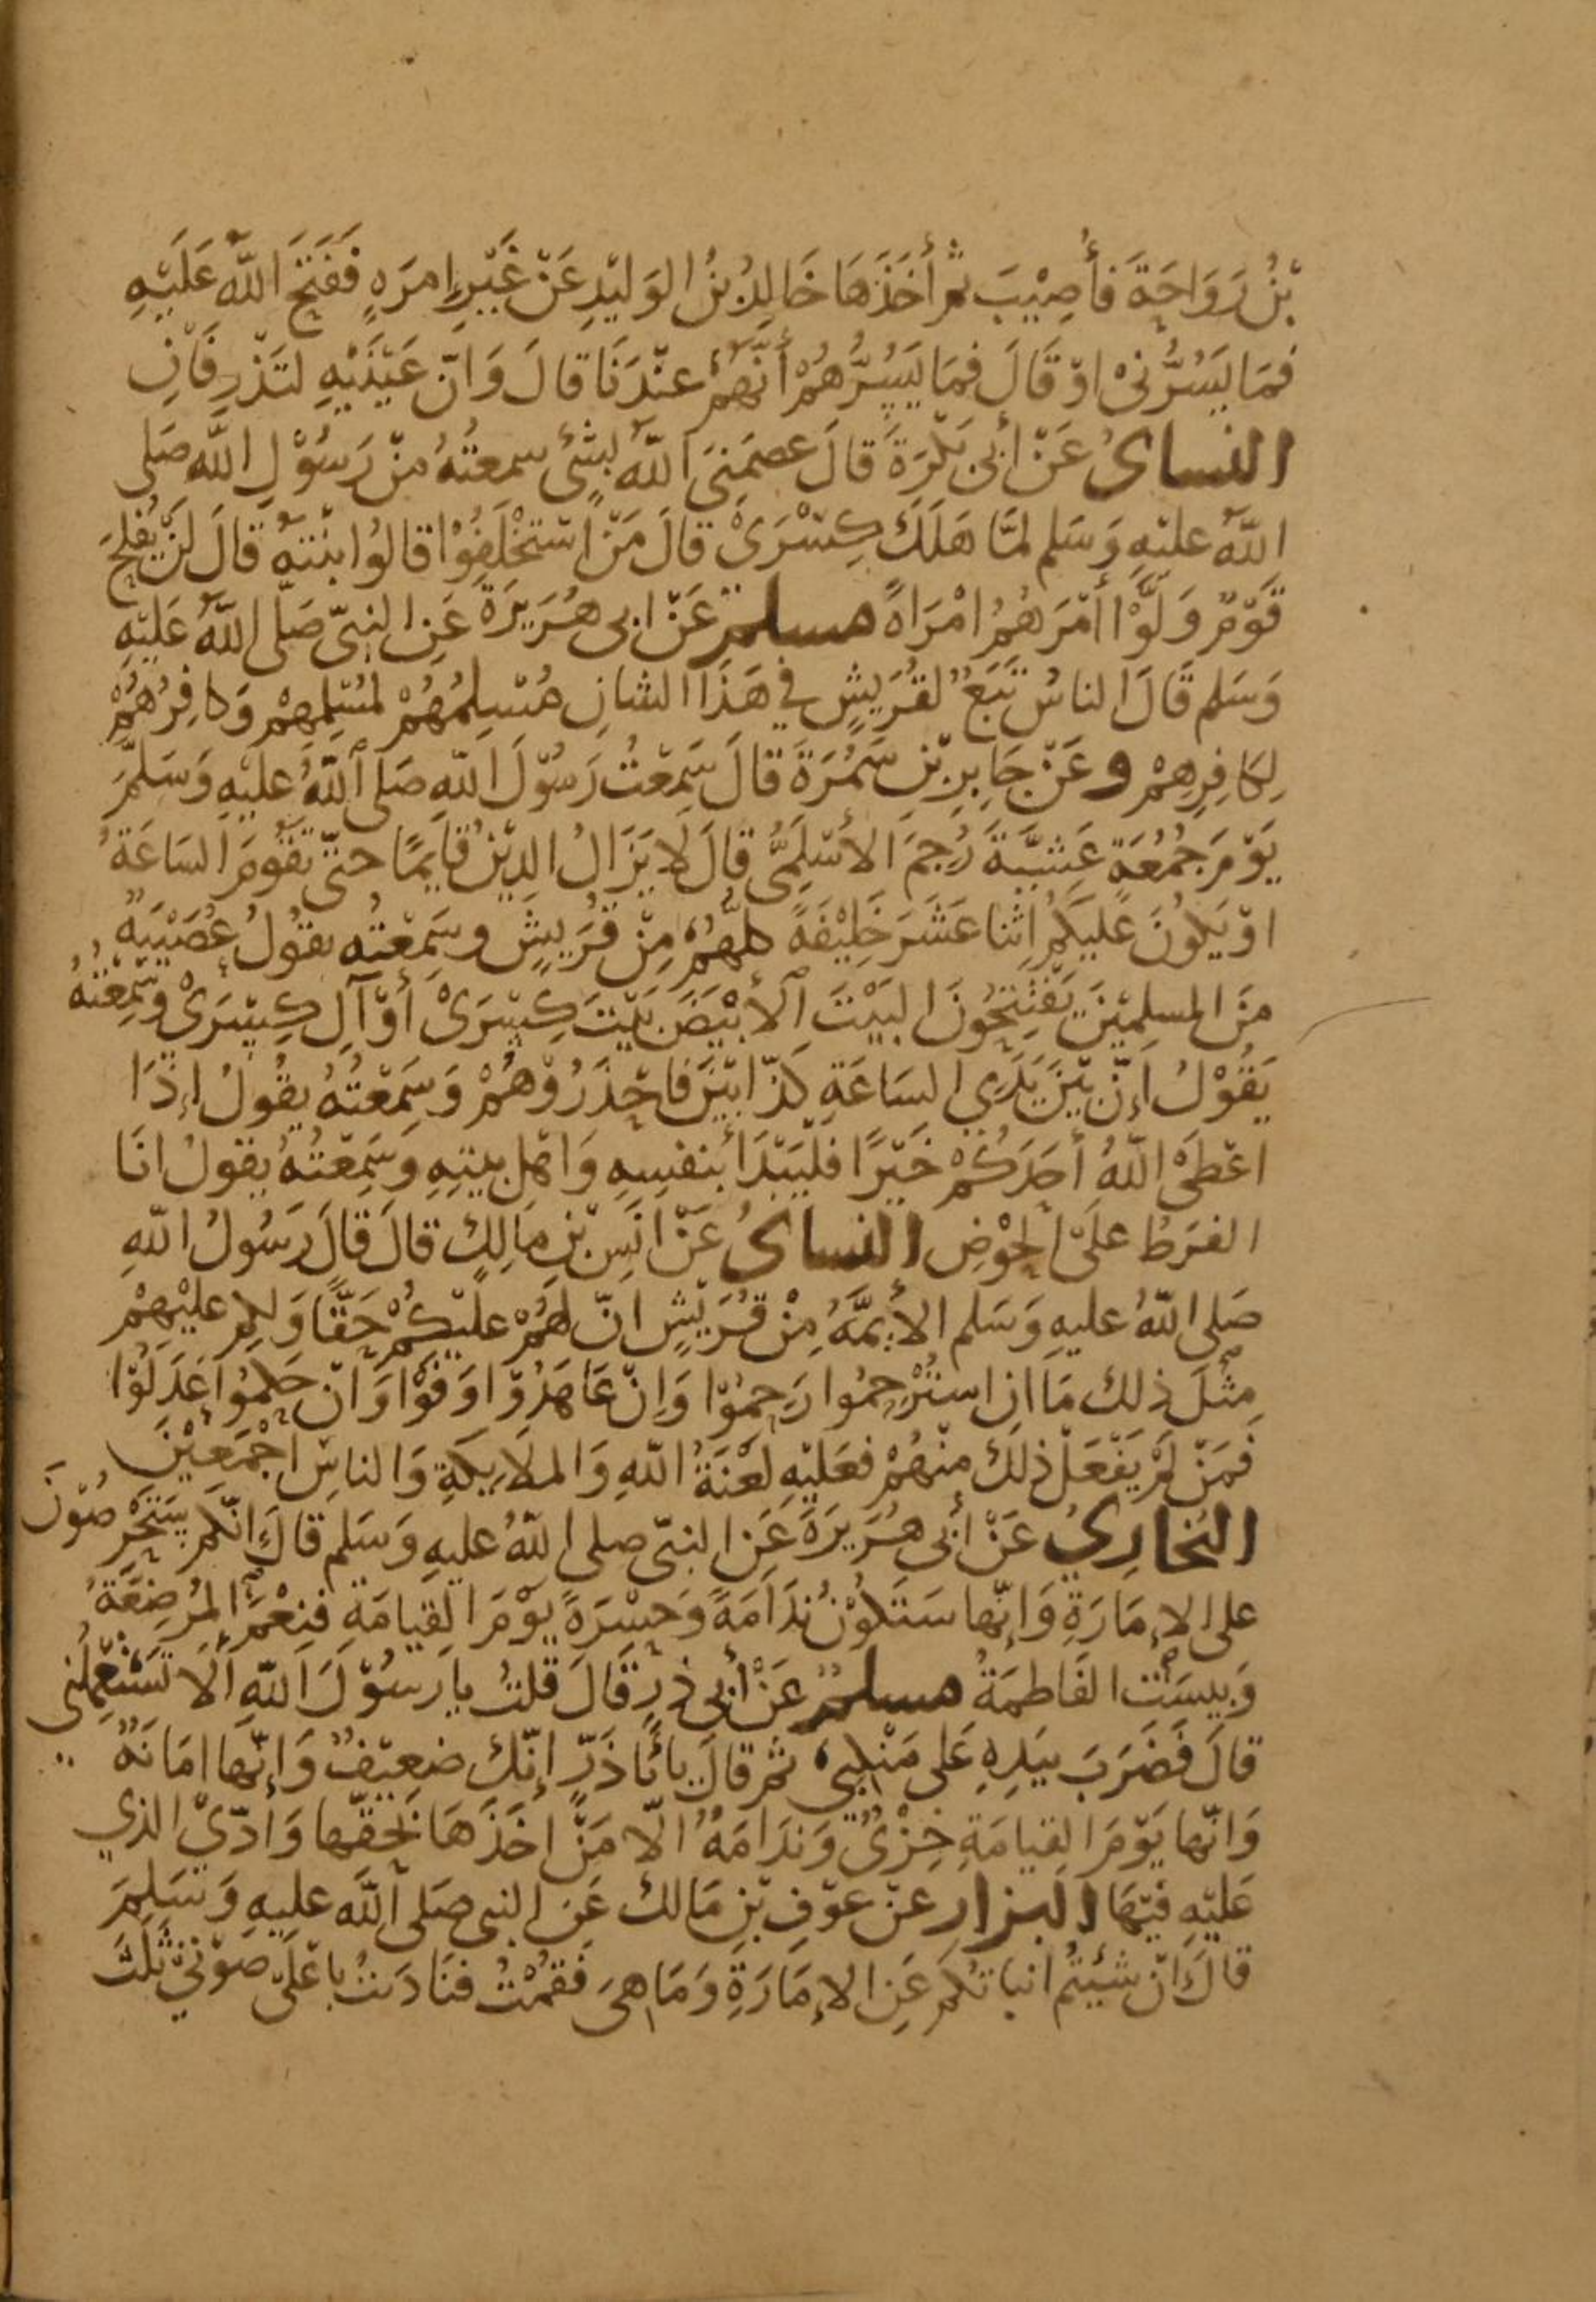 بْنُ رَوَاحَةَ فَأُصِيْبَ ثم أَخَذَهَا خَالِدُ بْنُ الوَلِيْدِ عَنْ غَيْرِ اِمرَةٍ فَفَتَحَ اللّهُ عَلَيْهِ
فمَا يَسُرُّنىْ اوْ قَالَ فمَا يَسُرُّهُمْ أَنَّهُمْ عنْدَنَا قالَ وَانّ عَيْنَيْهِ لتَذْرِفَانِ
النساىُ عَنْ أبى بَكْرَةَ قالَ عصَمَنِىَ اللّهُ بشَئ سمعتُهُ منْ رَسُوْلِ اللّه صَلى
اللّهُ عليْهِ وَسَلم لمّا هَلَكَ كِسْرَىْ قالَ مَنْ اسْتَخْلَفُوْا قالوُا ابنْتهُ قالَ لَنْ يفْلحَ
قَوْمٌ وَلَّوْا أَمْرَهُمُ امْرَاةً مسلم عَنْ ابى هُرَيرَةَ عَنِ النبىّ صَلّى اللّهُ عَلَيْهِ
وَسَلم قالَ الناسُ تَبَعٌ لقُرَيشٍ في هَذَا الشانِ مُسْلِمُهُمْ لمُسْلِمِهِمْ وَكافِرُهُمْ
لِكَافِرِهِمْ وعَنْ جَابِرِ بْنِ سَمُرَةَ قالَ سَمِعْتُ رَسُوْلَ اللّهِ صَلى اللّهُ عليْهِ وَسَلمَ
يَوْمَ جُمُعَةٍ عَشِيَّةَ رُجِمَ الأَسْلِمَىُّ قالَ لا يَزَالُ الدِيْنُ قايمًا حتّى تقوُمَ السَاعَةُ
اوْ يَكُونَ عَلَيكُمُ اثنا عَشَرَ خَلِيْفَةً كلهُّمْ مِنْ قُرَيشٍ وسَمِعْتُه يقوُلُ عُصَيْبَةٌ
منَ المسلمِيْنَ يَفْتَتِحُونَ البَيْتَ الأَبْيَضَ بَيْتَ كِسْرَىْ أَوْ آلِ كِسْرَىْ وسَمِعْتهُ
يَقُوْلُ اِنّ بَيْنَ يَدَيِ السَاعَةِ كَذّابيْنَ فَاحْذَرُوْهُمْ وَسَمِعْتُهُ يقُولُ إِذَا
اعْطَىْ اللّهُ أَحَدَكُمْ خَيْرًا فلْيَبْدَأ بنفسِهِ وَاهْلِ بيتِهِ وَسَمِعْتُهُ يقوُلُ انَا
الفرَطُ علَىْ الحَوْضِ النساىُ عَنْ انَسِ بْنِ مَالِكٍ قالَ قالَ رَسُولُ اللّهِ
صَلى اللّهُ عليهِ وَسَلم الأَيمَّةُ مِنْ قُرَيْشٍ انّ لهُمْ عليْكُمْ حَقًّا وَلكم عليْهِمْ
مِثْلَ ذلك مَا ان استُرْحِمُوا رَحِمُوْا وَاِنْ عَاهَدُوْا وَفَوْا وَانْ حَكموُا عَدَلُوْا
فَمَنْ لَمْ يَفْعَلْ ذلكَ منْهُمْ فعَليْهِ لَعْنَةُ اللّهِ وَالملاَيكَةِ وَالناسِ اَجْمَعِيْنَ
البُخارِيُ عَنْ أبى هُرَيرَةَ عَنِ النبىّ صلى اللّهُ عليهِ وَسَلم قالَ إنّكم سَتَحْرِصُوْنَ
على الإمَارَةِ وَإنّها سَتَكُوْنُ نَدَامَةً وَحَسْرَةً يوْمَ القِيَامَةِ فنِعْمَ المُرْضِعَةُ
وَبيسَتِ الفَاطمَةُ مسلمٌ عَنْ أبى ذرٍ قَالَ قلتُ يا رَسُوْلَ اللّهِ اَلَا تَسْتَعْمِلُنى
قالَ فَضَرَبَ بيَدِهِ عَلى مَنْكبىِ ثم قالَ يا أبَا ذَرٍّ إنّكَ ضعيْفٌ وَإنّها امَانَةٌ
وَانّها يَوْمَ القِيامَةِ خِزْىٌ وَنَدَامَةٌ الّا مَنْ اخَذَهَا بحَقّها وَادّىْ الذي
عَليْهِ فيْهَا البزار عَنْ عوْفِ بْنِ مَالكٍ عَنِ النبى صَلى اللّهُ عليهِ وَسَلمَ
قالَ انْ شئيتُم انباتكُم عَنِ الإمَارَةِ وَمَا هىَ فَقمْتُ فنَاديتُ باعْلَى صوْتىْ ثَلَثَ